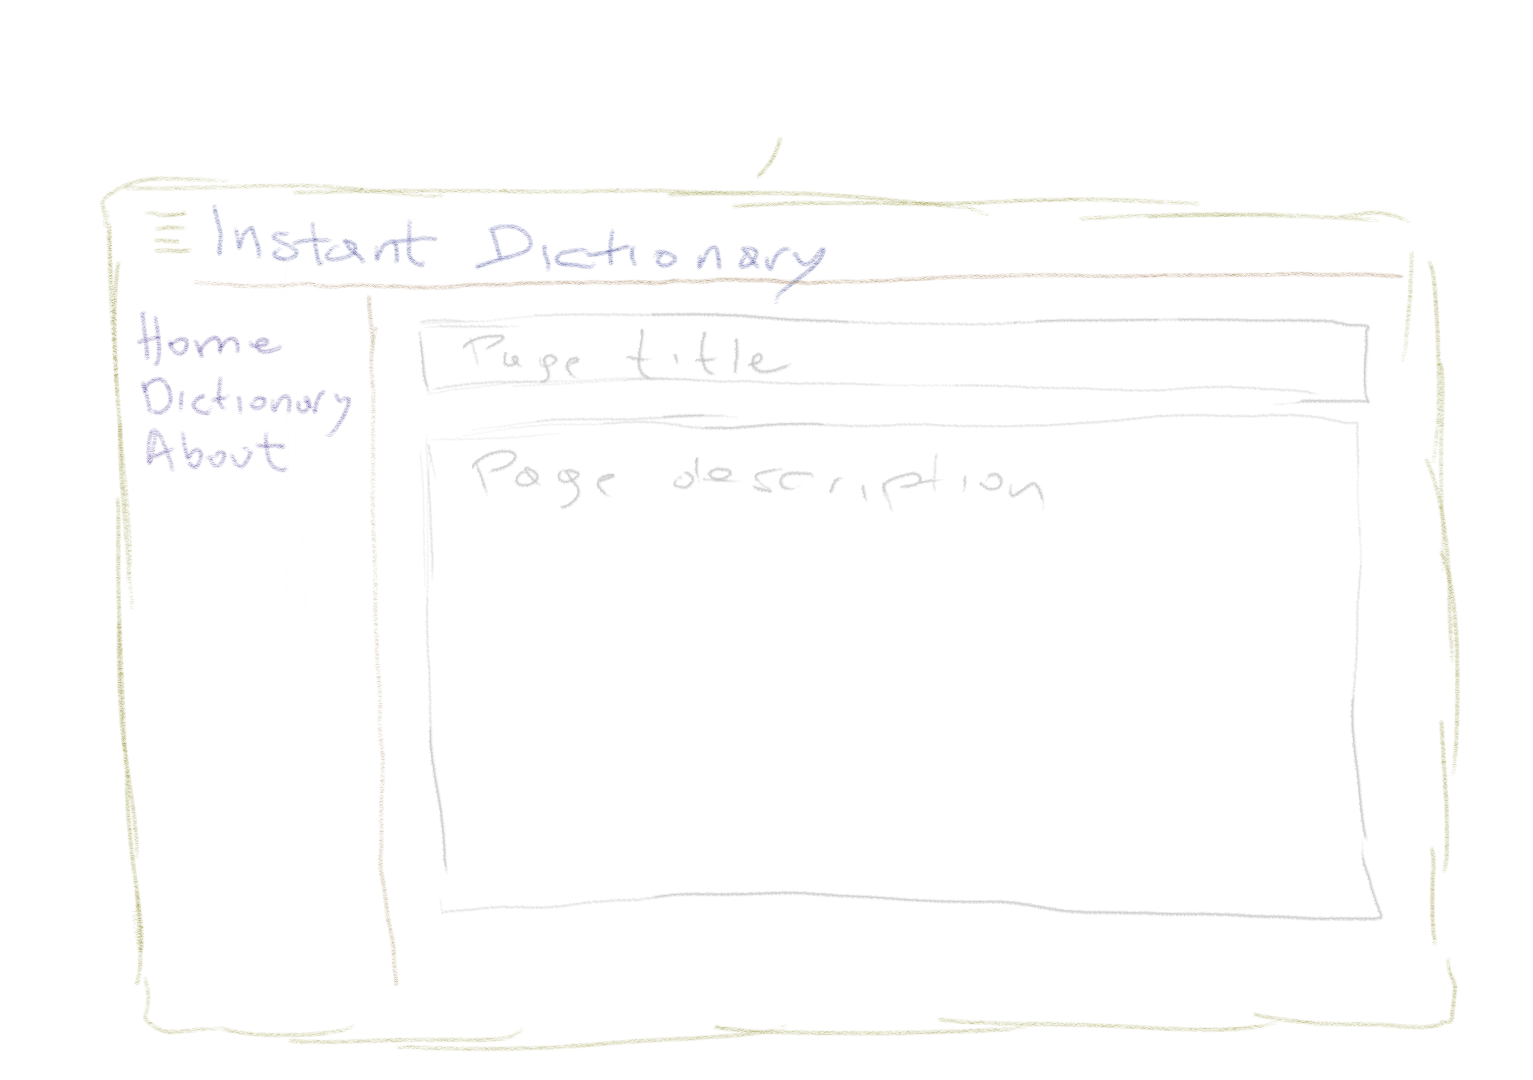 Instant Dictionary
Home
Dictionary
About
Page title
Page description